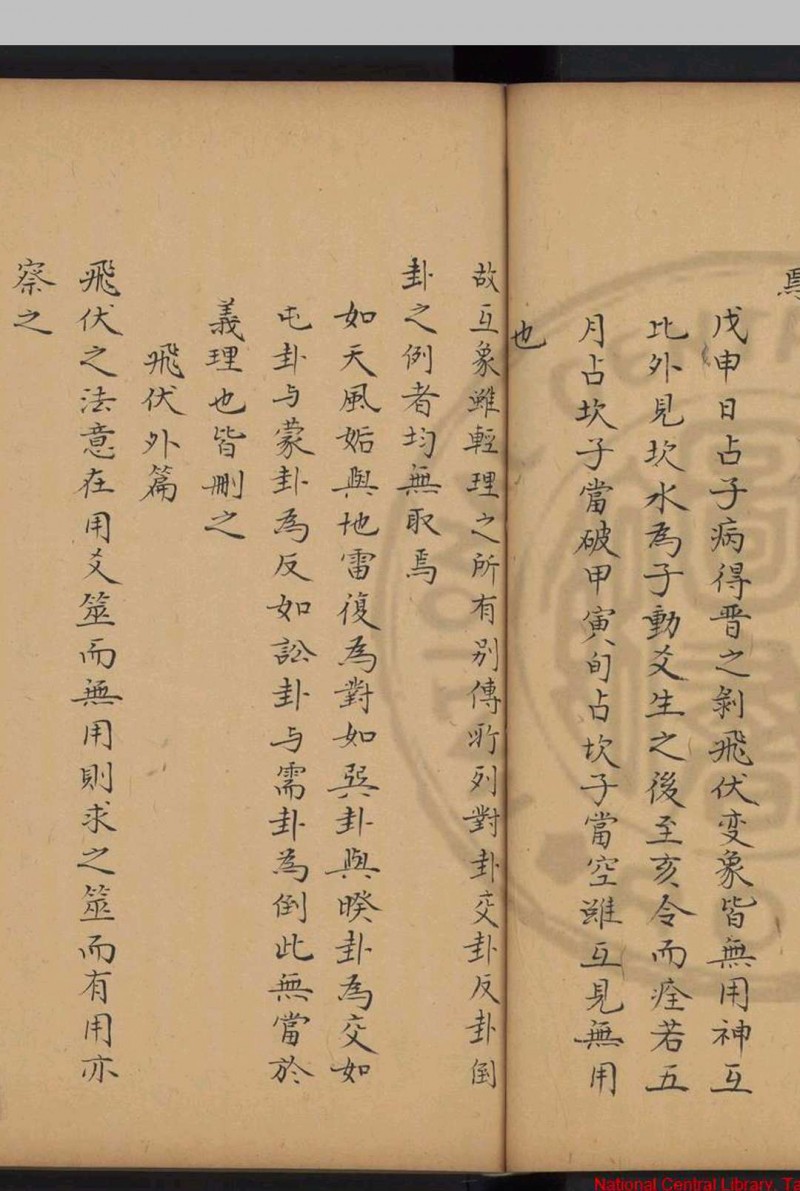 焉
戊申日占子病得晋之剝飛伏变象皆無用神互
比外見坎水為子動爻生之後至亥令而痊若五
月占坎子當破甲寅旬占坎子當空雖互見無用
也
故互象雖輕理之所有别傳所列對卦交卦反卦倒
卦之例者均無取焉
如天風姤與地雷復為對如巽卦與暌卦為交如
屯卦与蒙卦為反如訟卦与需卦為倒此無當於
義理也皆刪之
飛伏外篇
飛伏之法意在用爻筮而無用則求之筮而有用亦
察之
National Central Library, Ta